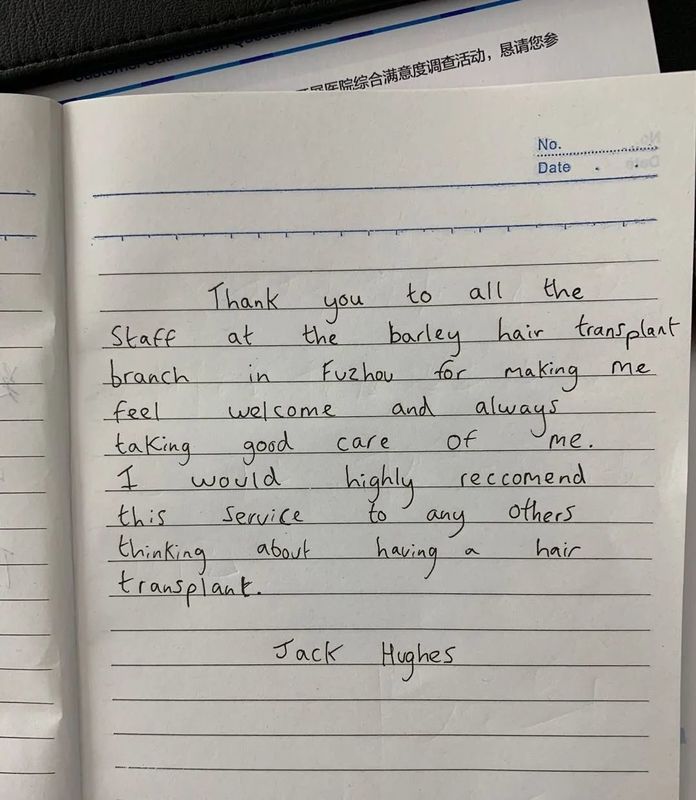 医院综合满意度调查活动，恳请您参
No.
Date
Thank you to all the
Staff at the barley hair transplant
branch in Fuzhou for making me
feel welcome and always
taking good care of me.
I would highly reccomend
this service to any others
thinking about having a hair
transplant.
Jack Hughes